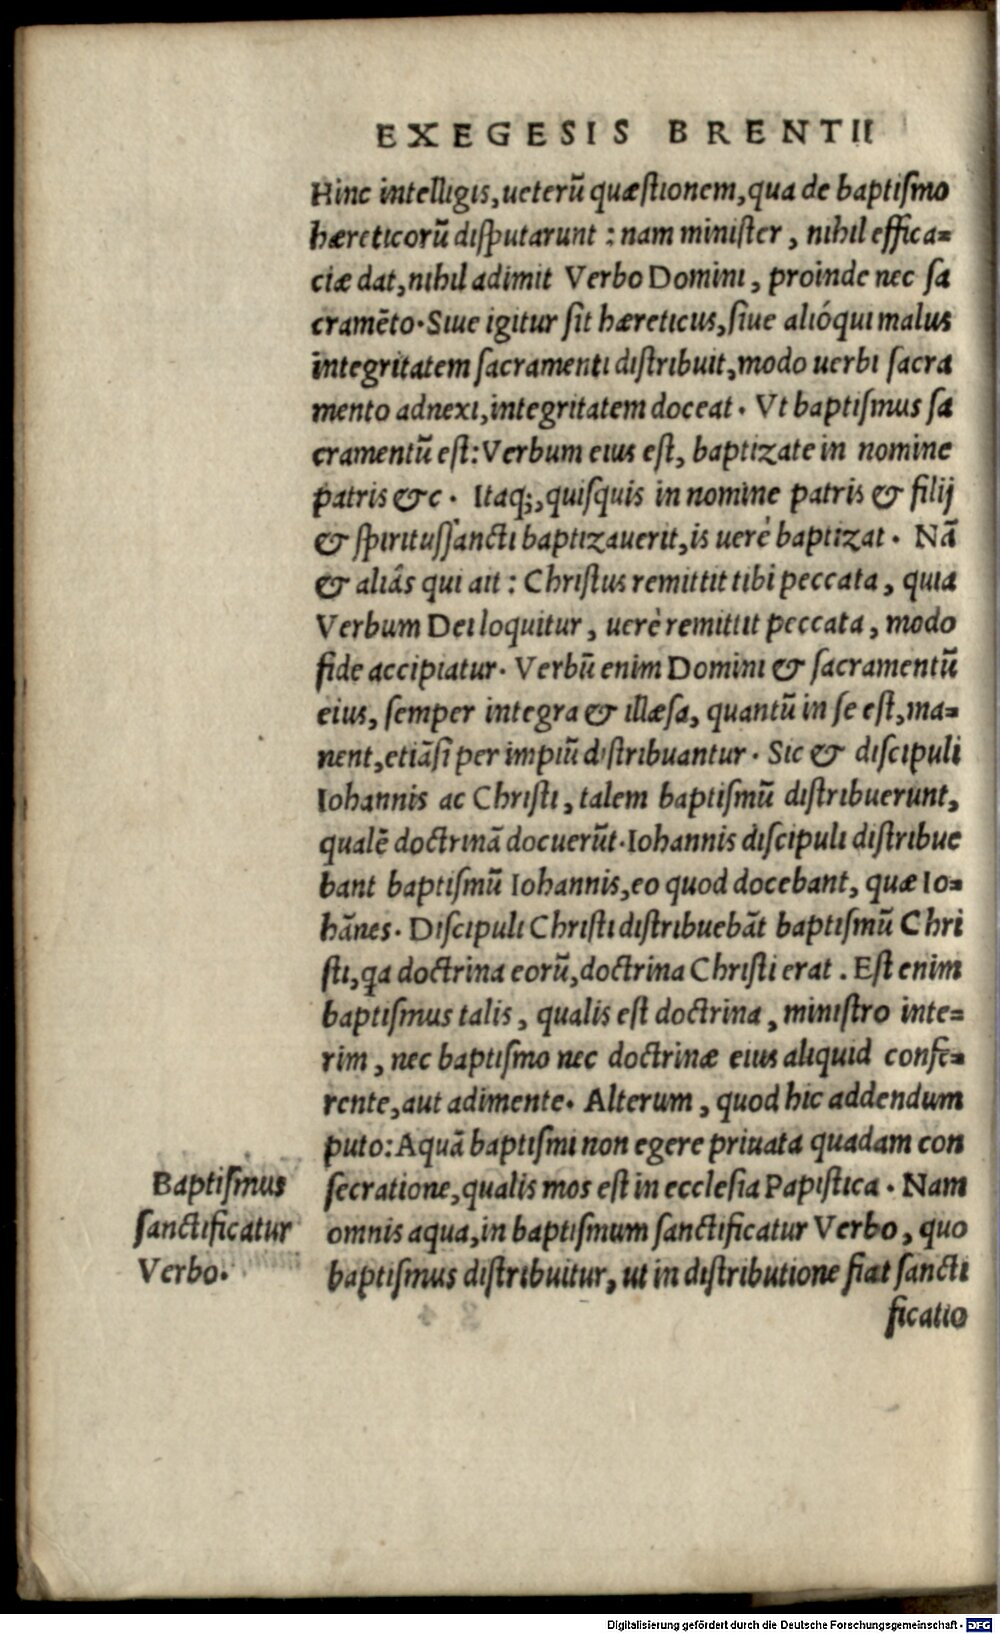 EXEGESIS BRENTII
Hinc intelligis, ueterũ quæstionem, qua de baptiſmo
hæreticorũ diſputarunt : nam miniſter, nihil effica=
ciæ dat, nihil adimit Verbo Domini, proinde nec ſa
cramẽto. Siue igitur ſit hæreticus, ſiue alióqui malus
integritatem ſacramenti diſtribuit, modo uerbi ſacra
mento adnexi, integritatem doceat. Vt baptiſmus ſa
cramentũ eſt: Verbum eius eſt, baptizate in nomine
patris &c. Itaq;, quiſquis in nomine patris & filij
& ſpirituſſancti baptizauerit, is uerè baptizat. Nã
& aliâs qui ait : Chriſtus remittit tibi peccata, quia
Verbum Dei loquitur, uerè remittit peccata, modo
fide accipiatur. Verbũ enim Domini & ſacramentũ
eius, ſemper integra & illæſa, quantũ in ſe eſt, ma=
nent, etiãſi per impiũ diſtribuantur. Sic & diſcipuli
Iohannis ac Chriſti, talem baptiſmũ diſtribuerunt,
qualẽ doctrinã docuerũt. Iohannis diſcipuli diſtribue
bant baptiſmũ Iohannis, eo quod docebant, quæ Io=
hãnes. Diſcipuli Chriſti diſtribuebãt baptiſmũ Chri
ſti, qa doctrina eorũ, doctrina Chriſti erat. Eſt enim
baptiſmus talis, qualis eſt doctrina, miniſtro inte=
rim, nec baptiſmo nec doctrinæ eius aliquid confe=
rente, aut adimente. Alterum, quod hic addendum
puto: Aquã baptiſmi non egere priuata quadam con
ſecratione, qualis mos eſt in eccleſia Papiſtica. Nam
omnis aqua, in baptiſmum ſanctificatur Verbo, quo
baptiſmus diſtribuitur, ut in diſtributione fiat ſancti
ficatio
Baptiſmus
ſanctificatur
Verbo.
Digitalisierung gefördert durch die Deutsche Forschungsgemeinschaft - DFG